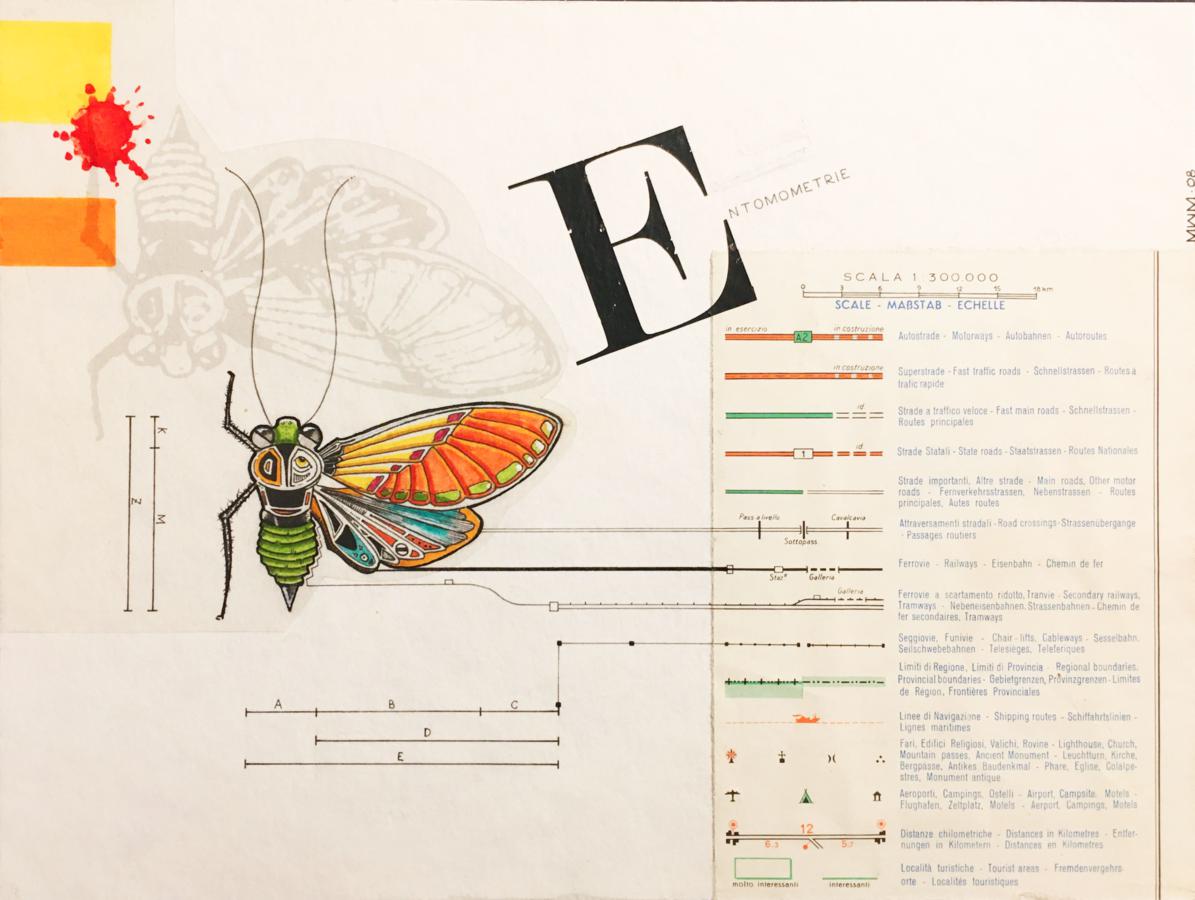 E
NTOMOMETRIE
MWM·08
SCALA 1 300.000
0 3 6 9 12 15 18 km
SCALE - MAßSTAB - ECHELLE
in esercizio in costruzione
A2
Autostrade - Motorways - Autobahnen - Autoroutes
in costruzione
Superstrade - Fast traffic roads - Schnellstrassen - Routes à
trafic rapide
id.
Strade a traffico veloce - Fast main roads - Schnellstrassen -
Routes principales
id.
1
Strade Statali - State roads - Staatstrassen - Routes Nationales
Strade importanti, Altre strade - Main roads, Other motor
roads - Fernverkehrsstrassen, Nebenstrassen - Routes
principales, Autes routes
Pass. a livello Cavalcavia
Sottopass.
Attraversamenti stradali - Road crossings - Strassenübergange
- Passages routiers
Staz.ⁿ Galleria
Ferrovie - Railways - Eisenbahn - Chemin de fer
Galleria
Ferrovie a scartamento ridotto, Tranvie - Secondary railways,
Tramways - Nebeneisenbahnen. Strassenbahnen - Chemin de
fer secondaires, Tramways
Seggiovie, Funivie - Chair-lifts, Cableways - Sesselbahn.
Seilschwebebahnen - Telesièges, Teleferiques
Limiti di Regione, Limiti di Provincia - Regional boundaries.
Provincial boundaries - Gebietgrenzen, Provinzgrenzen - Limites
de Région, Frontières Provinciales
Linee di Navigazione - Shipping routes - Schiffahrtslinien -
Lignes maritimes
Fari, Edifici Religiosi, Valichi, Rovine - Lighthouse, Church,
Mountain passes, Ancient Monument - Leuchtturn, Kirche,
Bergpasse, Antikes Baudenkmal - Phare, Eglise, Colalpe-
stres, Monument antique
Aeroporti, Campings, Ostelli - Airport, Campsite. Motels -
Flughafen, Zeltplatz, Motels - Aerport, Campings, Motels
12
6.3 5.7
Distanze chilometriche - Distances in Kilometres - Entfer-
nungen in Kilometern - Distances en Kilometres
molto interessanti interessanti
Località turistiche - Tourist areas - Fremdenvergehrs-
orte - Localités touristiques
K
Z
M
A B C
D
E